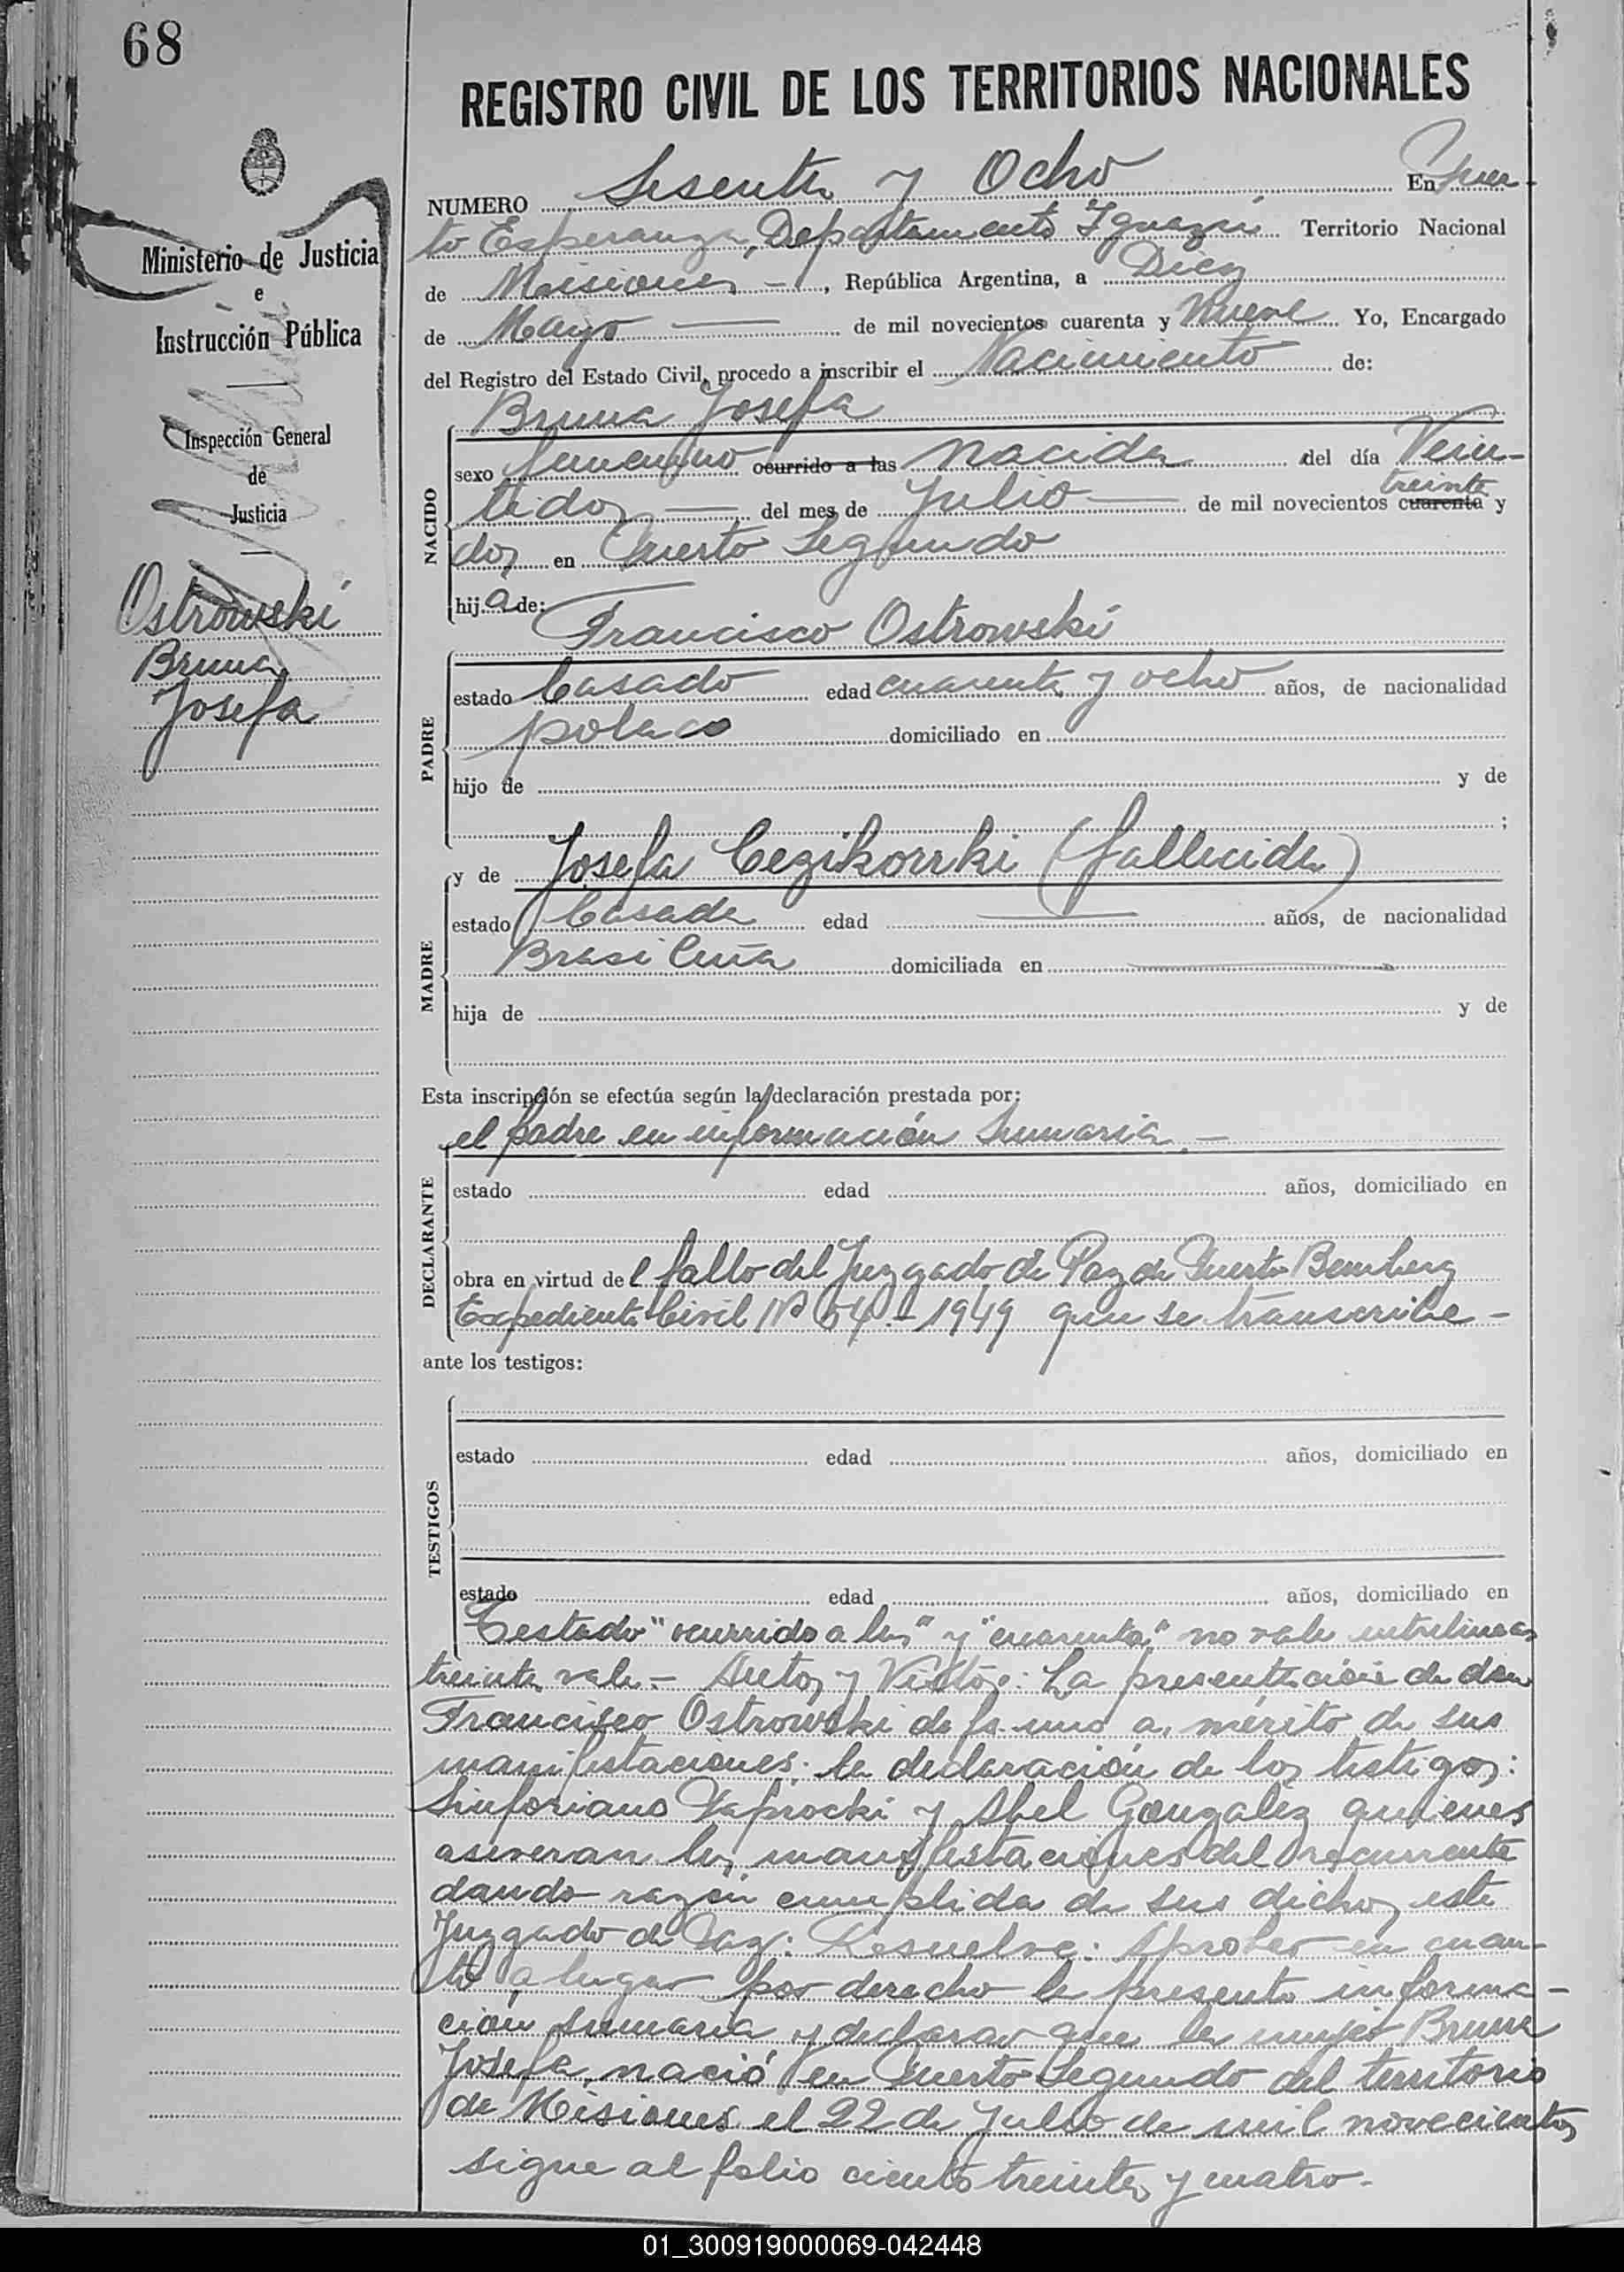 68
REGISTRO CIVIL DE LOS TERRITORIOS NACIONALES
NUMERO Sesenta y Ocho En Puer-
to Esperanza, Departamento Iguazú Territorio Nacional
de Misiones -, República Argentina, a Diez
de Mayo — de mil novecientos cuarenta y nueve Yo, Encargado
del Registro del Estado Civil, procedo a inscribir el Nacimiento de:
Bruna Josefa
sexo femenino ocurrido a las nacida del día Vein-
tidos — del mes de Julio — de mil novecientos cuarenta treinta y
dos en Puerto Segundo
hija de:
Francisco Ostrowski
estado Casado edad cuarenta y ocho años, de nacionalidad
polaco domiciliado en
hijo de y de
;
y de Josefa Cezikorrki (fallecida)
estado Casada edad — años, de nacionalidad
Brasileña domiciliada en —
hija de y de
Esta inscripción se efectúa según la declaración prestada por:
el padre en información Sumaria. -
estado edad años, domiciliado en
obra en virtud del fallo del Juzgado de Paz de Puerto Bemberg
Expediente Civil Nº 64 - 1949 que se transcribe -
ante los testigos:
estado edad años, domiciliado en
estado edad años, domiciliado en
Testado "ocurrido a las" y "cuarenta" no vale entrelineas
treinta vale.- Autos y Vistos: La presentación de don
Francisco Ostrowski de fs. uno a, mérito de sus
manifestaciones; la declaración de los testigos:
Sinforiano Paprocki y Abel Gonzalez quienes
aseveran las manifestaciones del recurrente
dando razón cumplida de sus dichos, este
Juzgado de Paz: Resuelve: Aprobar en cuan-
to a lugar por derecho la presente informa-
ción sumaria y declarar que la mujer Bruna
Josefa, nació en Puerto Segundo del territorio
de Misiones el 22 de Julio de mil novecientos
sigue al folio ciento treinta y cuatro.
Ministerio de Justicia
e
Instrucción Pública
Inspección General
de
Justicia
Ostrowski
Bruna
Josefa
NACIDO
PADRE
MADRE
DECLARANTE
TESTIGOS
01_300919000069-042448